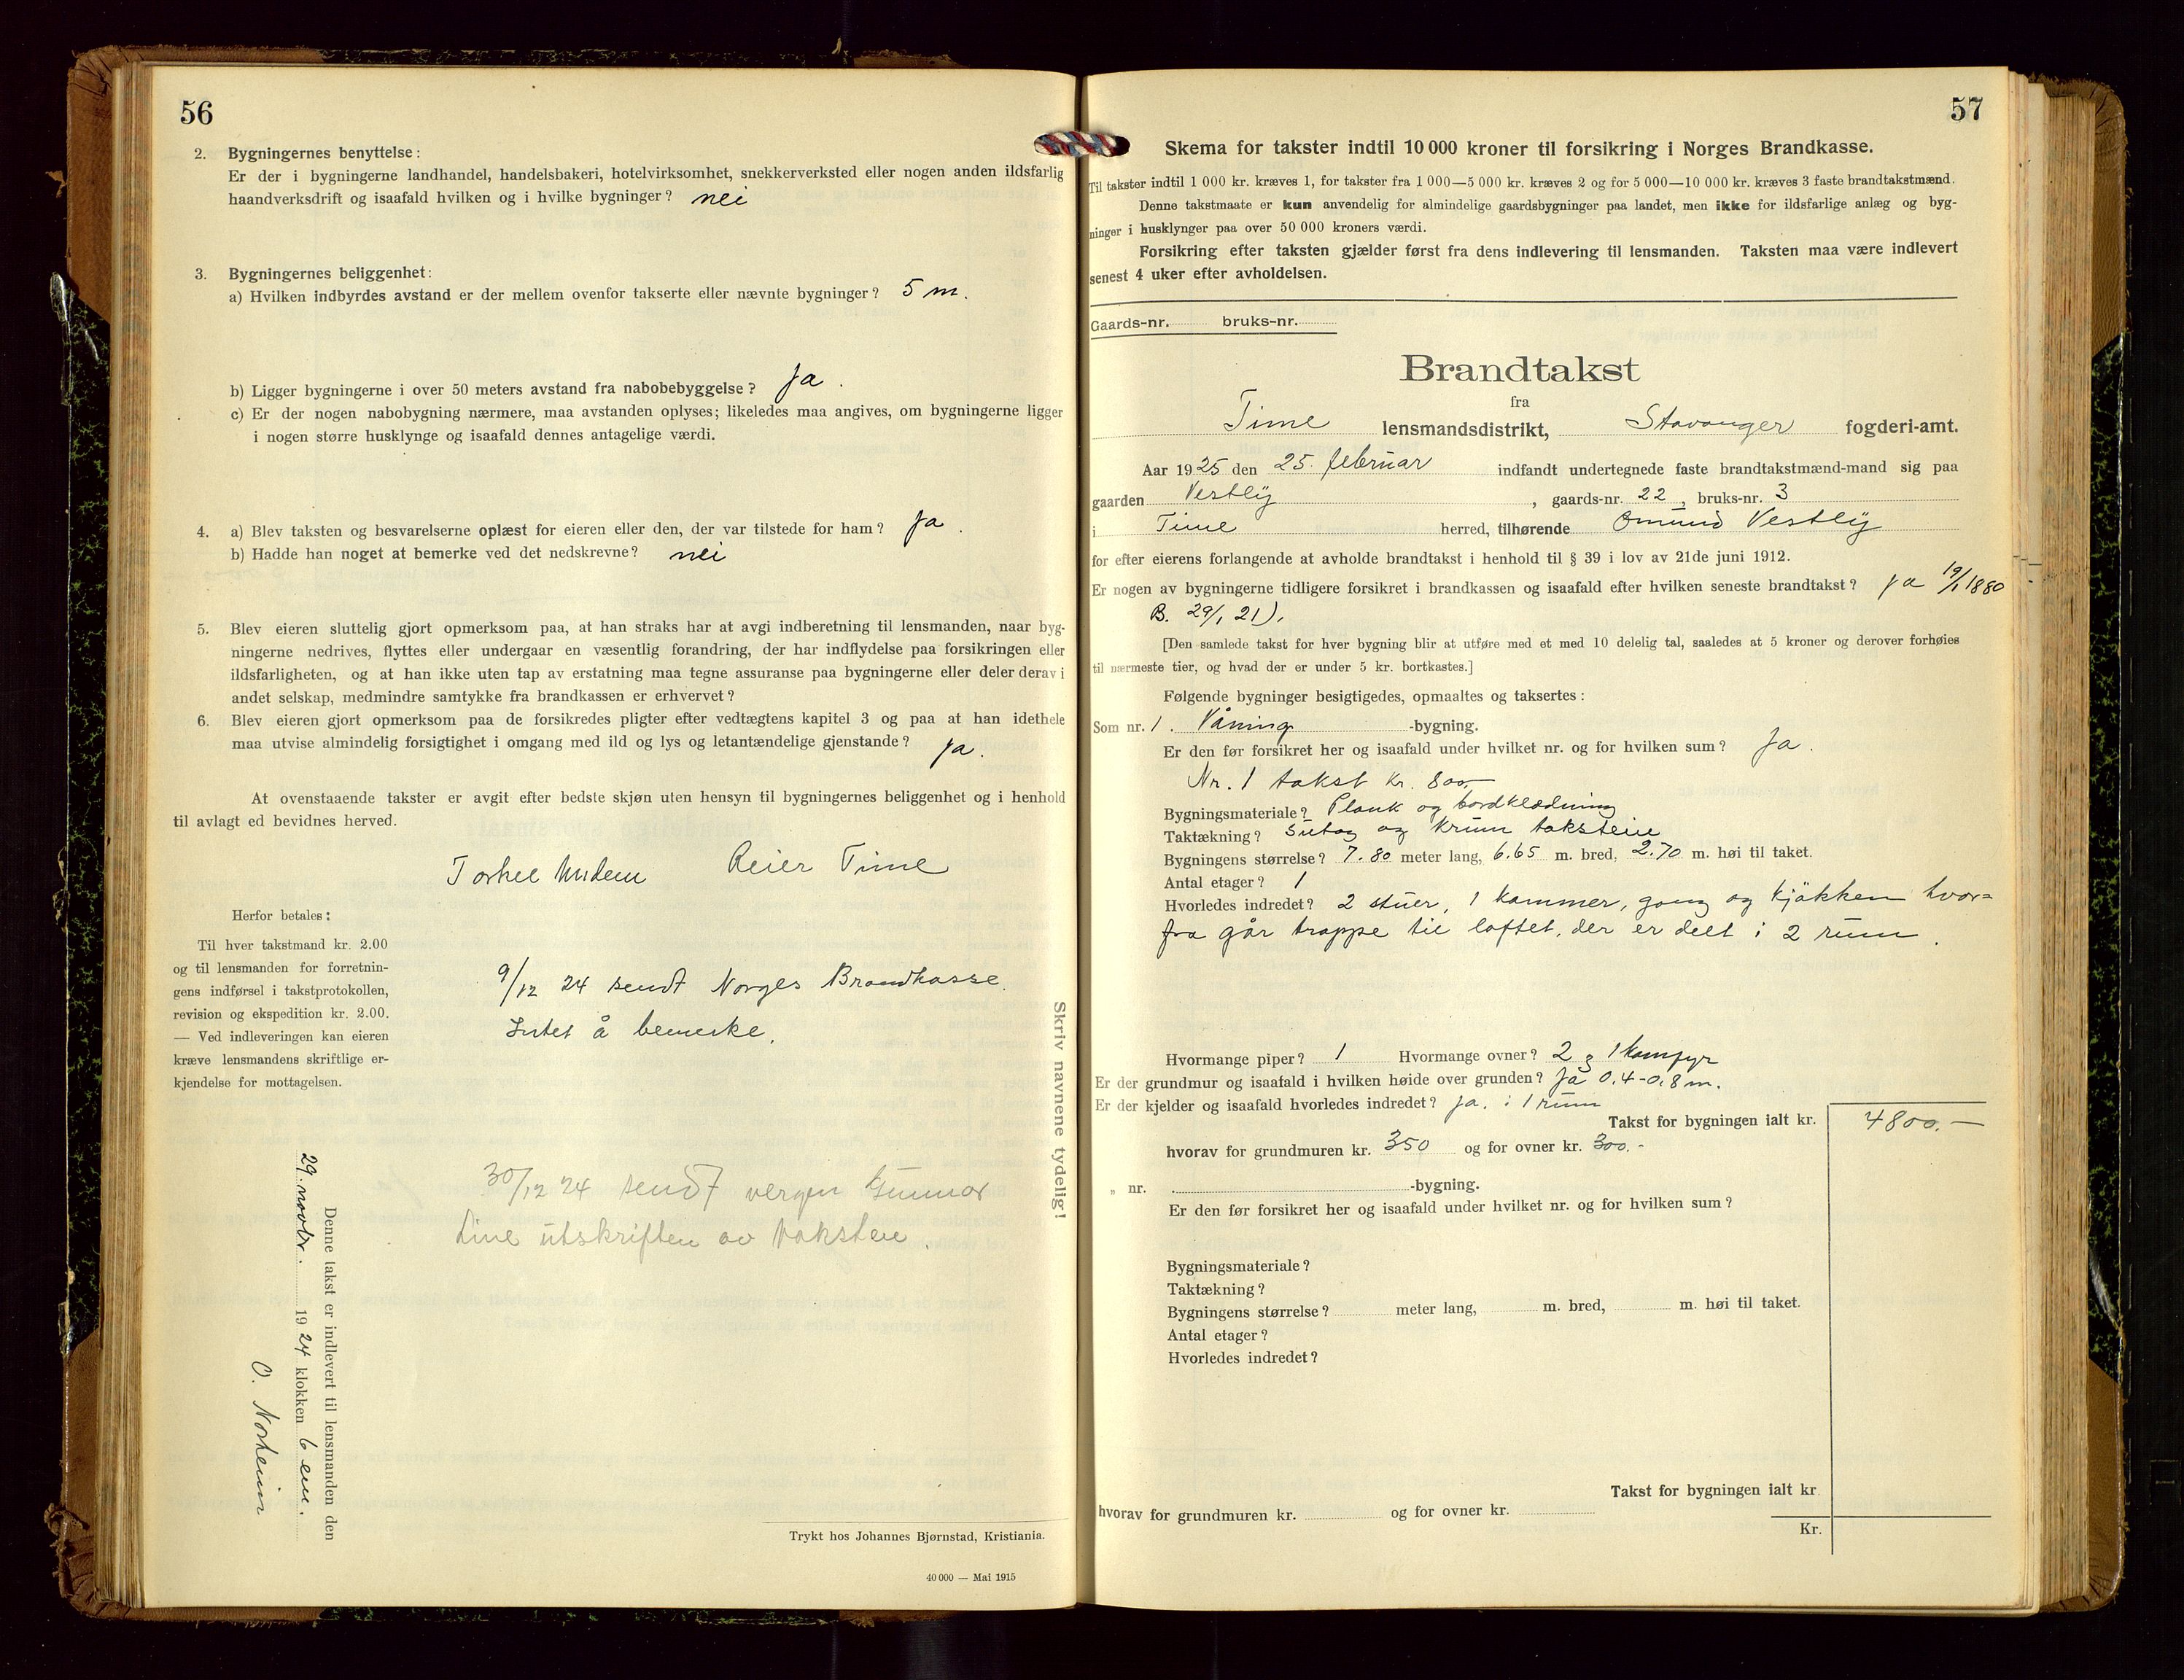 56
2. Bygningernes benyttelse:
Er der i bygningerne landhandel, handelsbakeri, hotelvirksomhet, snekkerverksted eller nogen anden ildsfarlig
haandverksdrift og isaafald hvilken og i hvilke bygninger? nei
3. Bygningernes beliggenhet:
a) Hvilken indbyrdes avstand er der mellem ovenfor takserte eller nævnte bygninger? 5 m.
b) Ligger bygningerne i over 50 meters avstand fra nabobebyggelse? ja.
c) Er der nogen nabobygning nærmere, maa avstanden oplyses; likeledes maa angives, om bygningerne ligger
i nogen større husklynge og isaafald dennes antagelige værdi.
4. a) Blev taksten og besvarelserne oplæst for eieren eller den, der var tilstede for ham? ja.
b) Hadde han noget at bemerke ved det nedskrevne? nei
5. Blev eieren sluttelig gjort opmerksom paa, at han straks har at avgi indberetning til lensmanden, naar byg-
ningerne nedrives, flyttes eller undergaar en væsentlig forandring, der har indflydelse paa forsikringen eller
ildsfarligheten, og at han ikke uten tap av erstatning maa tegne assuranse paa bygningerne eller deler derav i
andet selskap, medmindre samtykke fra brandkassen er erhvervet?
6. Blev eieren gjort opmerksom paa de forsikredes pligter efter vedtægtens kapitel 3 og paa at han idethele
maa utvise almindelig forsigtighet i omgang med ild og lys og letantændelige gjenstande? ja.
At ovenstaaende takster er avgit efter bedste skjøn uten hensyn til bygningernes beliggenhet og i henhold
til avlagt ed bevidnes herved.
Reier Time
Herfor betales:
Til hver takstmand kr. 2.00
og til lensmanden for forretnin-
gens indførsel i takstprotokollen,
revision og ekspedition kr. 2.00.
— Ved indleveringen kan eieren
kræve lensmandens skriftlige er-
kjendelse for mottagelsen.
9/12 24 sendt Norges Brandkasse.
Intet å bemerke.
30/12 24 sendt vergen Gunnar
Line utskriften av taksten.
Skriv navnene tydelig!
Denne takst er indlevert til lensmanden den
29. novbr. 1924 klokken 6 em.
O. Norheim
Trykt hos Johannes Bjørnstad, Kristiania.
40 000 — Mai 1915
57
Skema for takster indtil 10 000 kroner til forsikring i Norges Brandkasse.
Til takster indtil 1 000 kr. kræves 1, for takster fra 1 000—5 000 kr. kræves 2 og for 5 000—10 000 kr. kræves 3 faste brandtakstmænd.
Denne takstmaate er kun anvendelig for almindelige gaardsbygninger paa landet, men ikke for ildsfarlige anlæg og byg-
ninger i husklynger paa over 50 000 kroners værdi.
Forsikring efter taksten gjælder først fra dens indlevering til lensmanden. Taksten maa være indlevert
senest 4 uker efter avholdelsen.
Gaards-nr. bruks-nr.
Brandtakst
fra
Time lensmandsdistrikt, Stavanger fogderi-amt.
Aar 1925 den 25. februar indfandt undertegnede faste brandtakstmænd-mand sig paa
gaarden Vestly, gaards-nr. 22, bruks-nr. 3
i Time herred, tilhørende Omund Vestly
for efter eierens forlangende at avholde brandtakst i henhold til § 39 i lov av 21de juni 1912.
Er nogen av bygningerne tidligere forsikret i brandkassen og isaafald efter hvilken seneste brandtakst? ja 19/1 1880
B. 29/1 21).
[Den samlede takst for hver bygning blir at utføre med et med 10 delelig tal, saaledes at 5 kroner og derover forhøies
til nærmeste tier, og hvad der er under 5 kr. bortkastes.]
Følgende bygninger besigtigedes, opmaaltes og taksertes:
Som nr. 1. Våning -bygning.
Er den før forsikret her og isaafald under hvilket nr. og for hvilken sum? Ja.
Nr. 1 takst kr. 800.-
Bygningsmateriale? Plank og bordklædning
Taktækning? Sutag og krum taksteine
Bygningens størrelse? 7.80 meter lang, 6.65 m. bred, 2.70 m. høi til taket.
Antal etager? 1
Hvorledes indredet? 2 stuer, 1 kammer, gang og kjøkken hvor=
fra går trappe til loftet, der er delt i 2 rum.
Hvormange piper? 1 Hvormange ovner? 2 og 1 komfyr
Er der grundmur og isaafald i hvilken høide over grunden? ja 0.4-0.8 m.
Er der kjelder og isaafald hvorledes indredet? ja. i 1 rum
Takst for bygningen ialt kr. 4800.-
hvorav for grundmuren kr. 350 og for ovner kr. 300.-
„ nr. . -bygning.
Er den før forsikret her og isaafald under hvilket nr. og for hvilken sum?
Bygningsmateriale?
Taktækning?
Bygningens størrelse? meter lang, m. bred, m. høi til taket.
Antal etager?
Hvorledes indredet?
Takst for bygningen ialt kr
hvorav for grundmuren kr. og for ovner kr.
Kr.